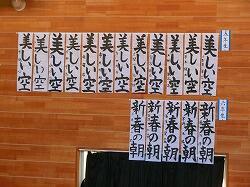 五年生
美しい空
美しい空
美しい空
美しい空
美しい空
美しい空
美しい空
美しい空
美しい空
美しい空
美しい空
六年生
新春の朝
新春の朝
新春の朝
新春の朝
新春の朝